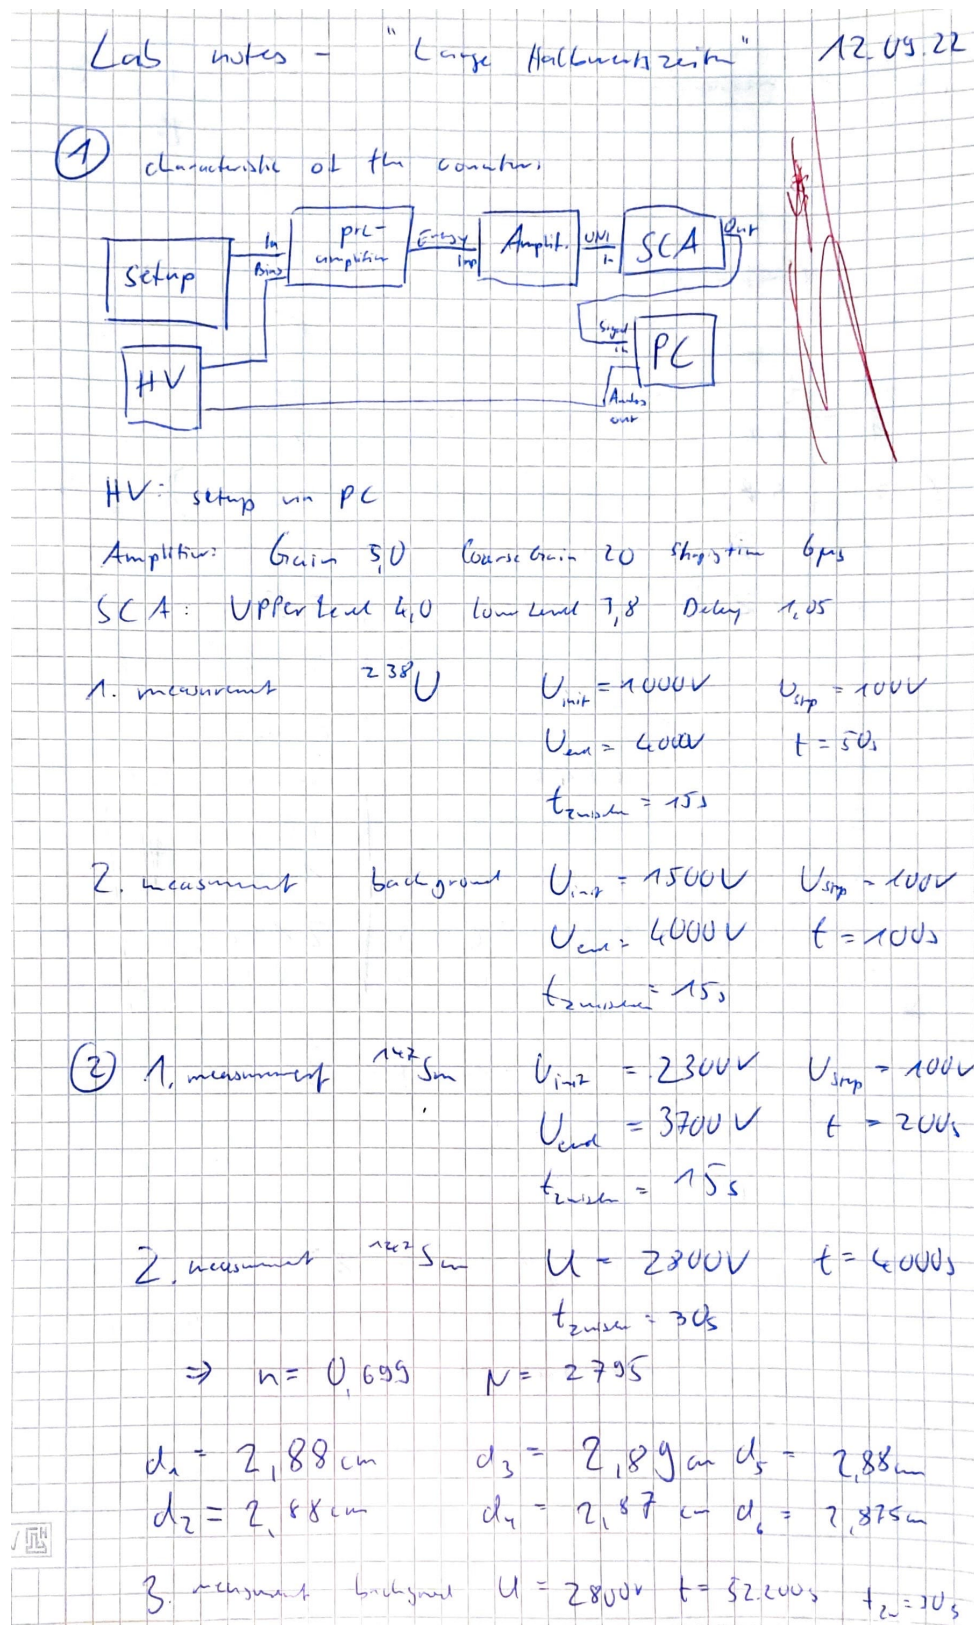 Lab notes - "Lange Halbwertszeiten" 12.09.22
1 characteristic of the counter:
setup In Bias pre-amplifier Energy Inp Amplif. UNI In SCA Out
HV Signal in PC
Analog out
HV: setup via PC
Amplifier: Gain 5,0 Coarse Gain 20 Shapingtime 6µs
SCA: Upper Level 4,0 Low Level 3,8 Delay 1,05
1. measurement 238U Uinit = 1000V Ustep = 100V
Uend = 4000V t = 50s
tzwischen = 15s
2. measurment background Uinit = 1500V Ustep = 100V
Uend = 4000V t = 100s
tzwischen = 15s
2 1. measurment 147Sm Uinit = 2300V Ustep = 100V
Uend = 3700V t = 200s
tzwischen = 15s
2. measurment 147Sm U = 2800V t = 4000s
tzwischen = 30s
⇒ n = 0,699 N = 2795
d1 = 2,88cm d3 = 2,89cm d5 = 2,88cm
d2 = 2,88cm d4 = 2,87cm d6 = 2,875cm
3. measurment background U = 2800V t = 52.200s tzw = 30s